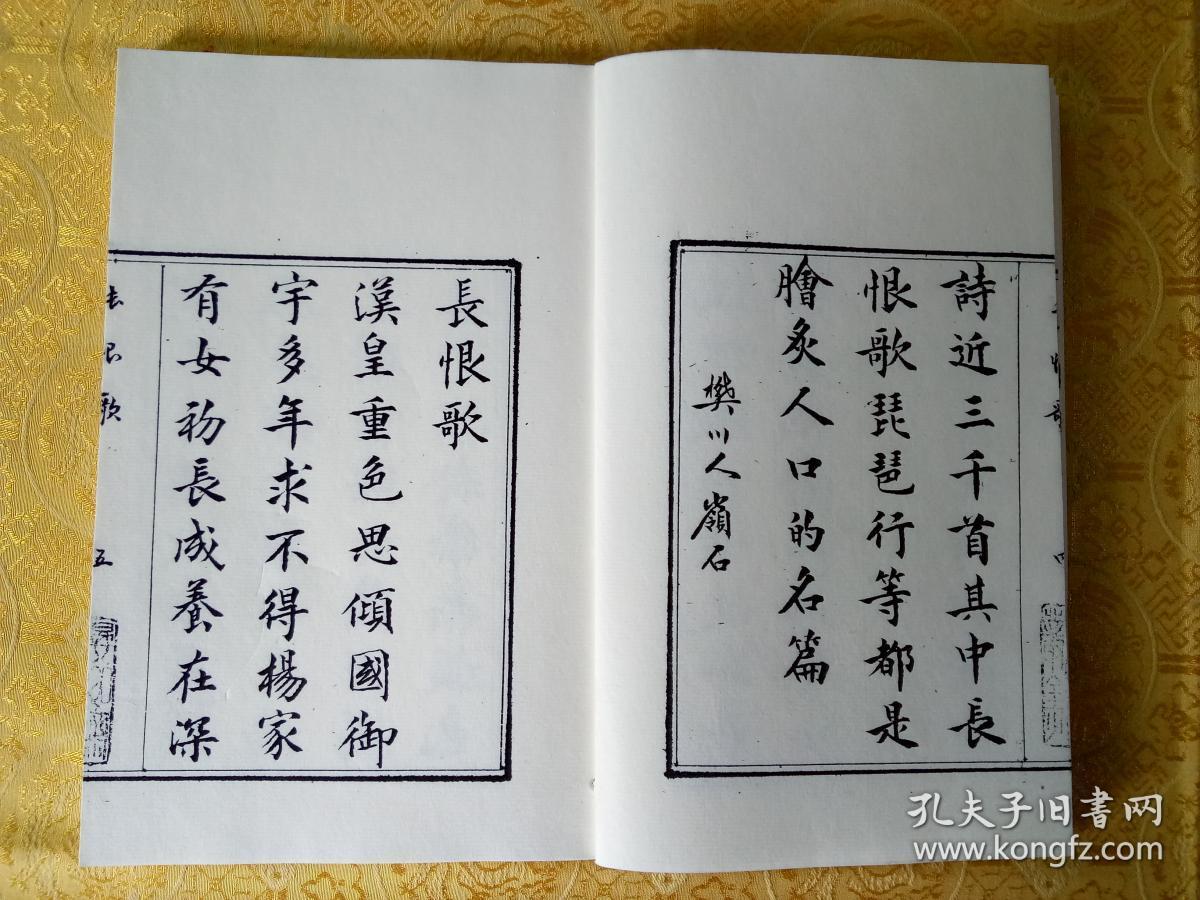 詩近三千首其中長
恨歌琵琶行等都是
膾炙人口的名篇
樊川人嶺石
長恨歌
漢皇重色思傾國御
宇多年求不得楊家
有女初長成養在深
長恨歌
五
孔夫子旧书网
www.kongfz.com